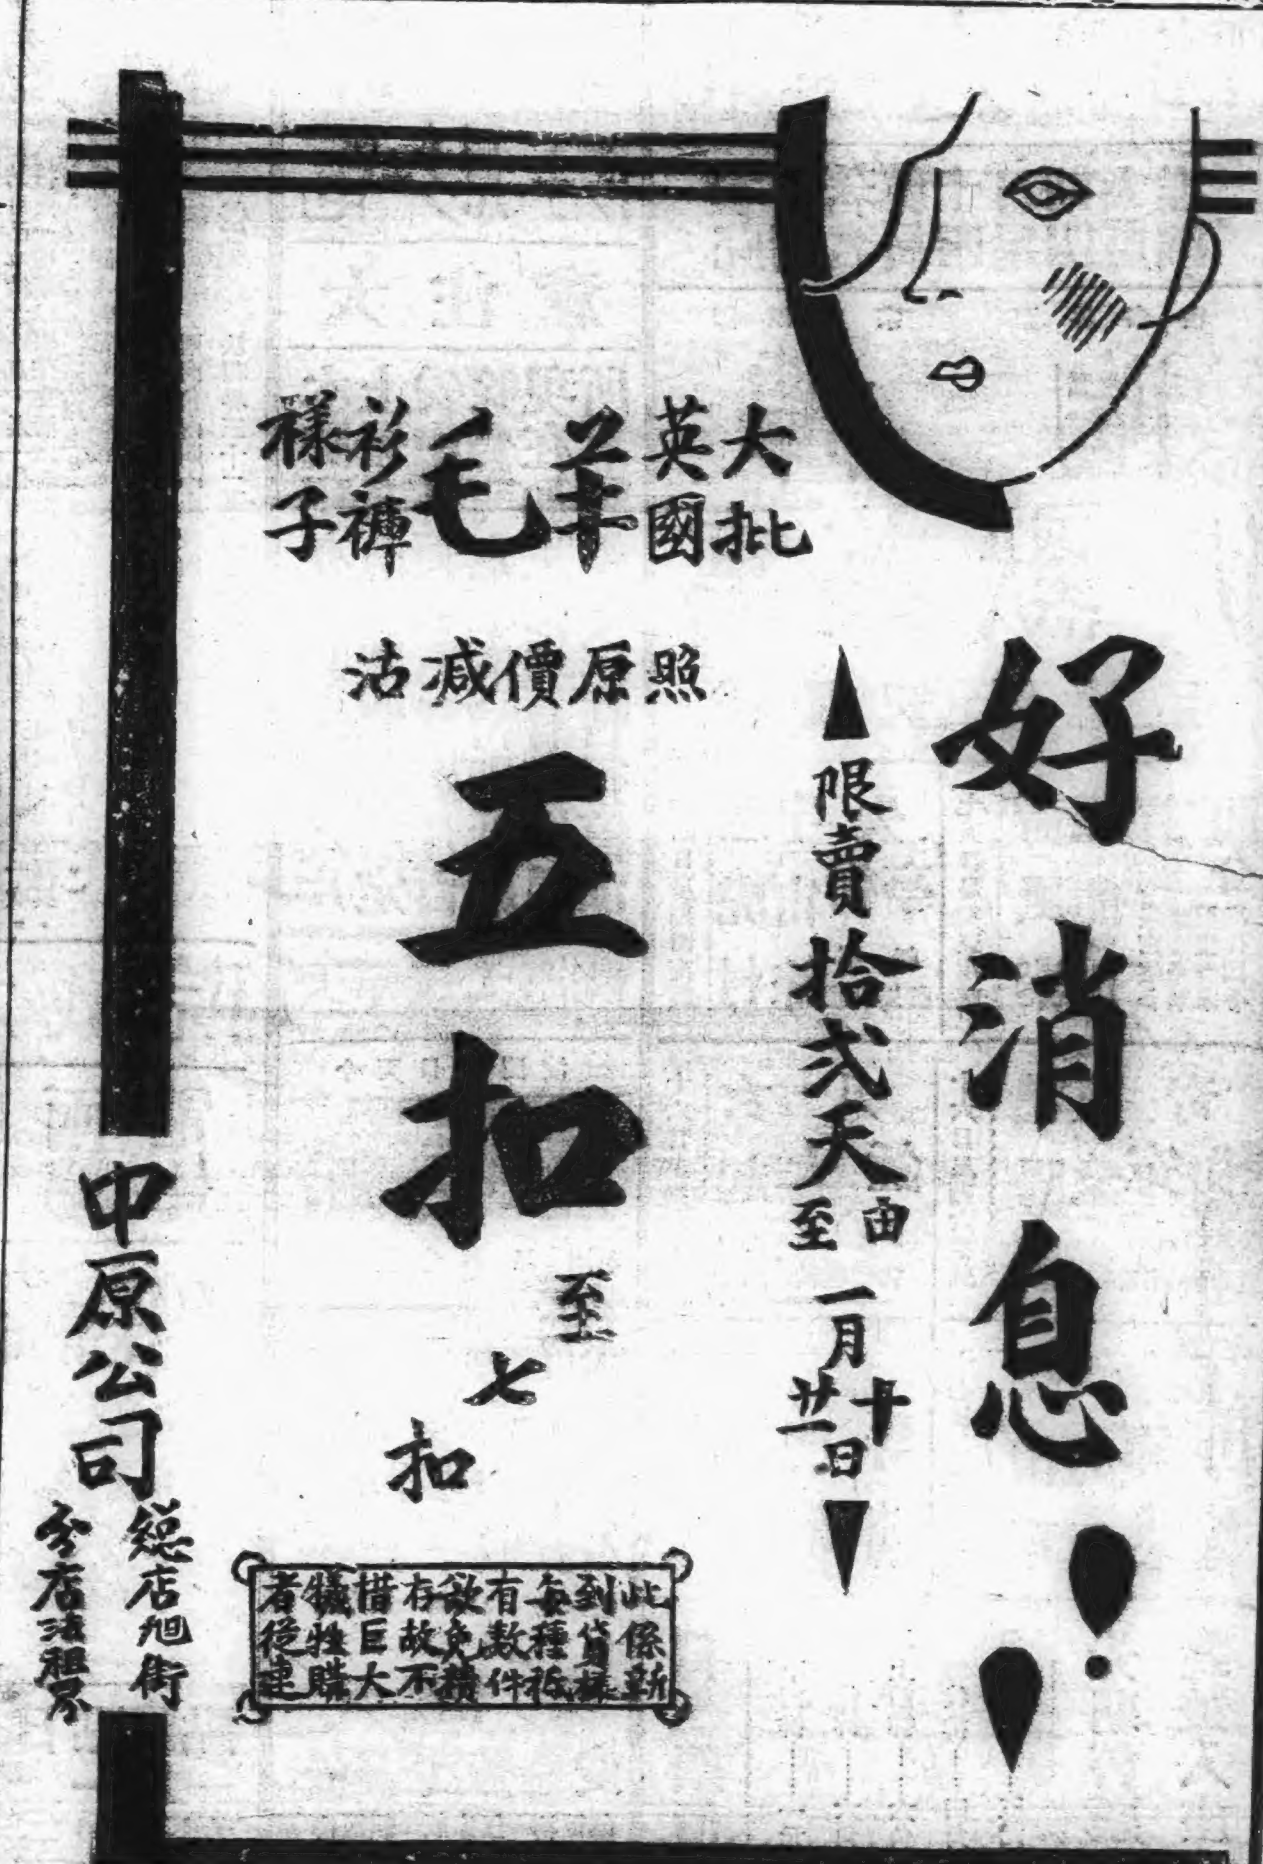 好消息!!
限賣拾弍天
由一月十日
至一月廿一日
大批
英國
羊毛
衫褲
樣子
照原價減沽
五扣
至七扣
此係新
到貨樣
每種祗
有數件
欲免積
存故不
惜巨大
犧牲購
者從速
中原公司
總店旭街
分店法租界